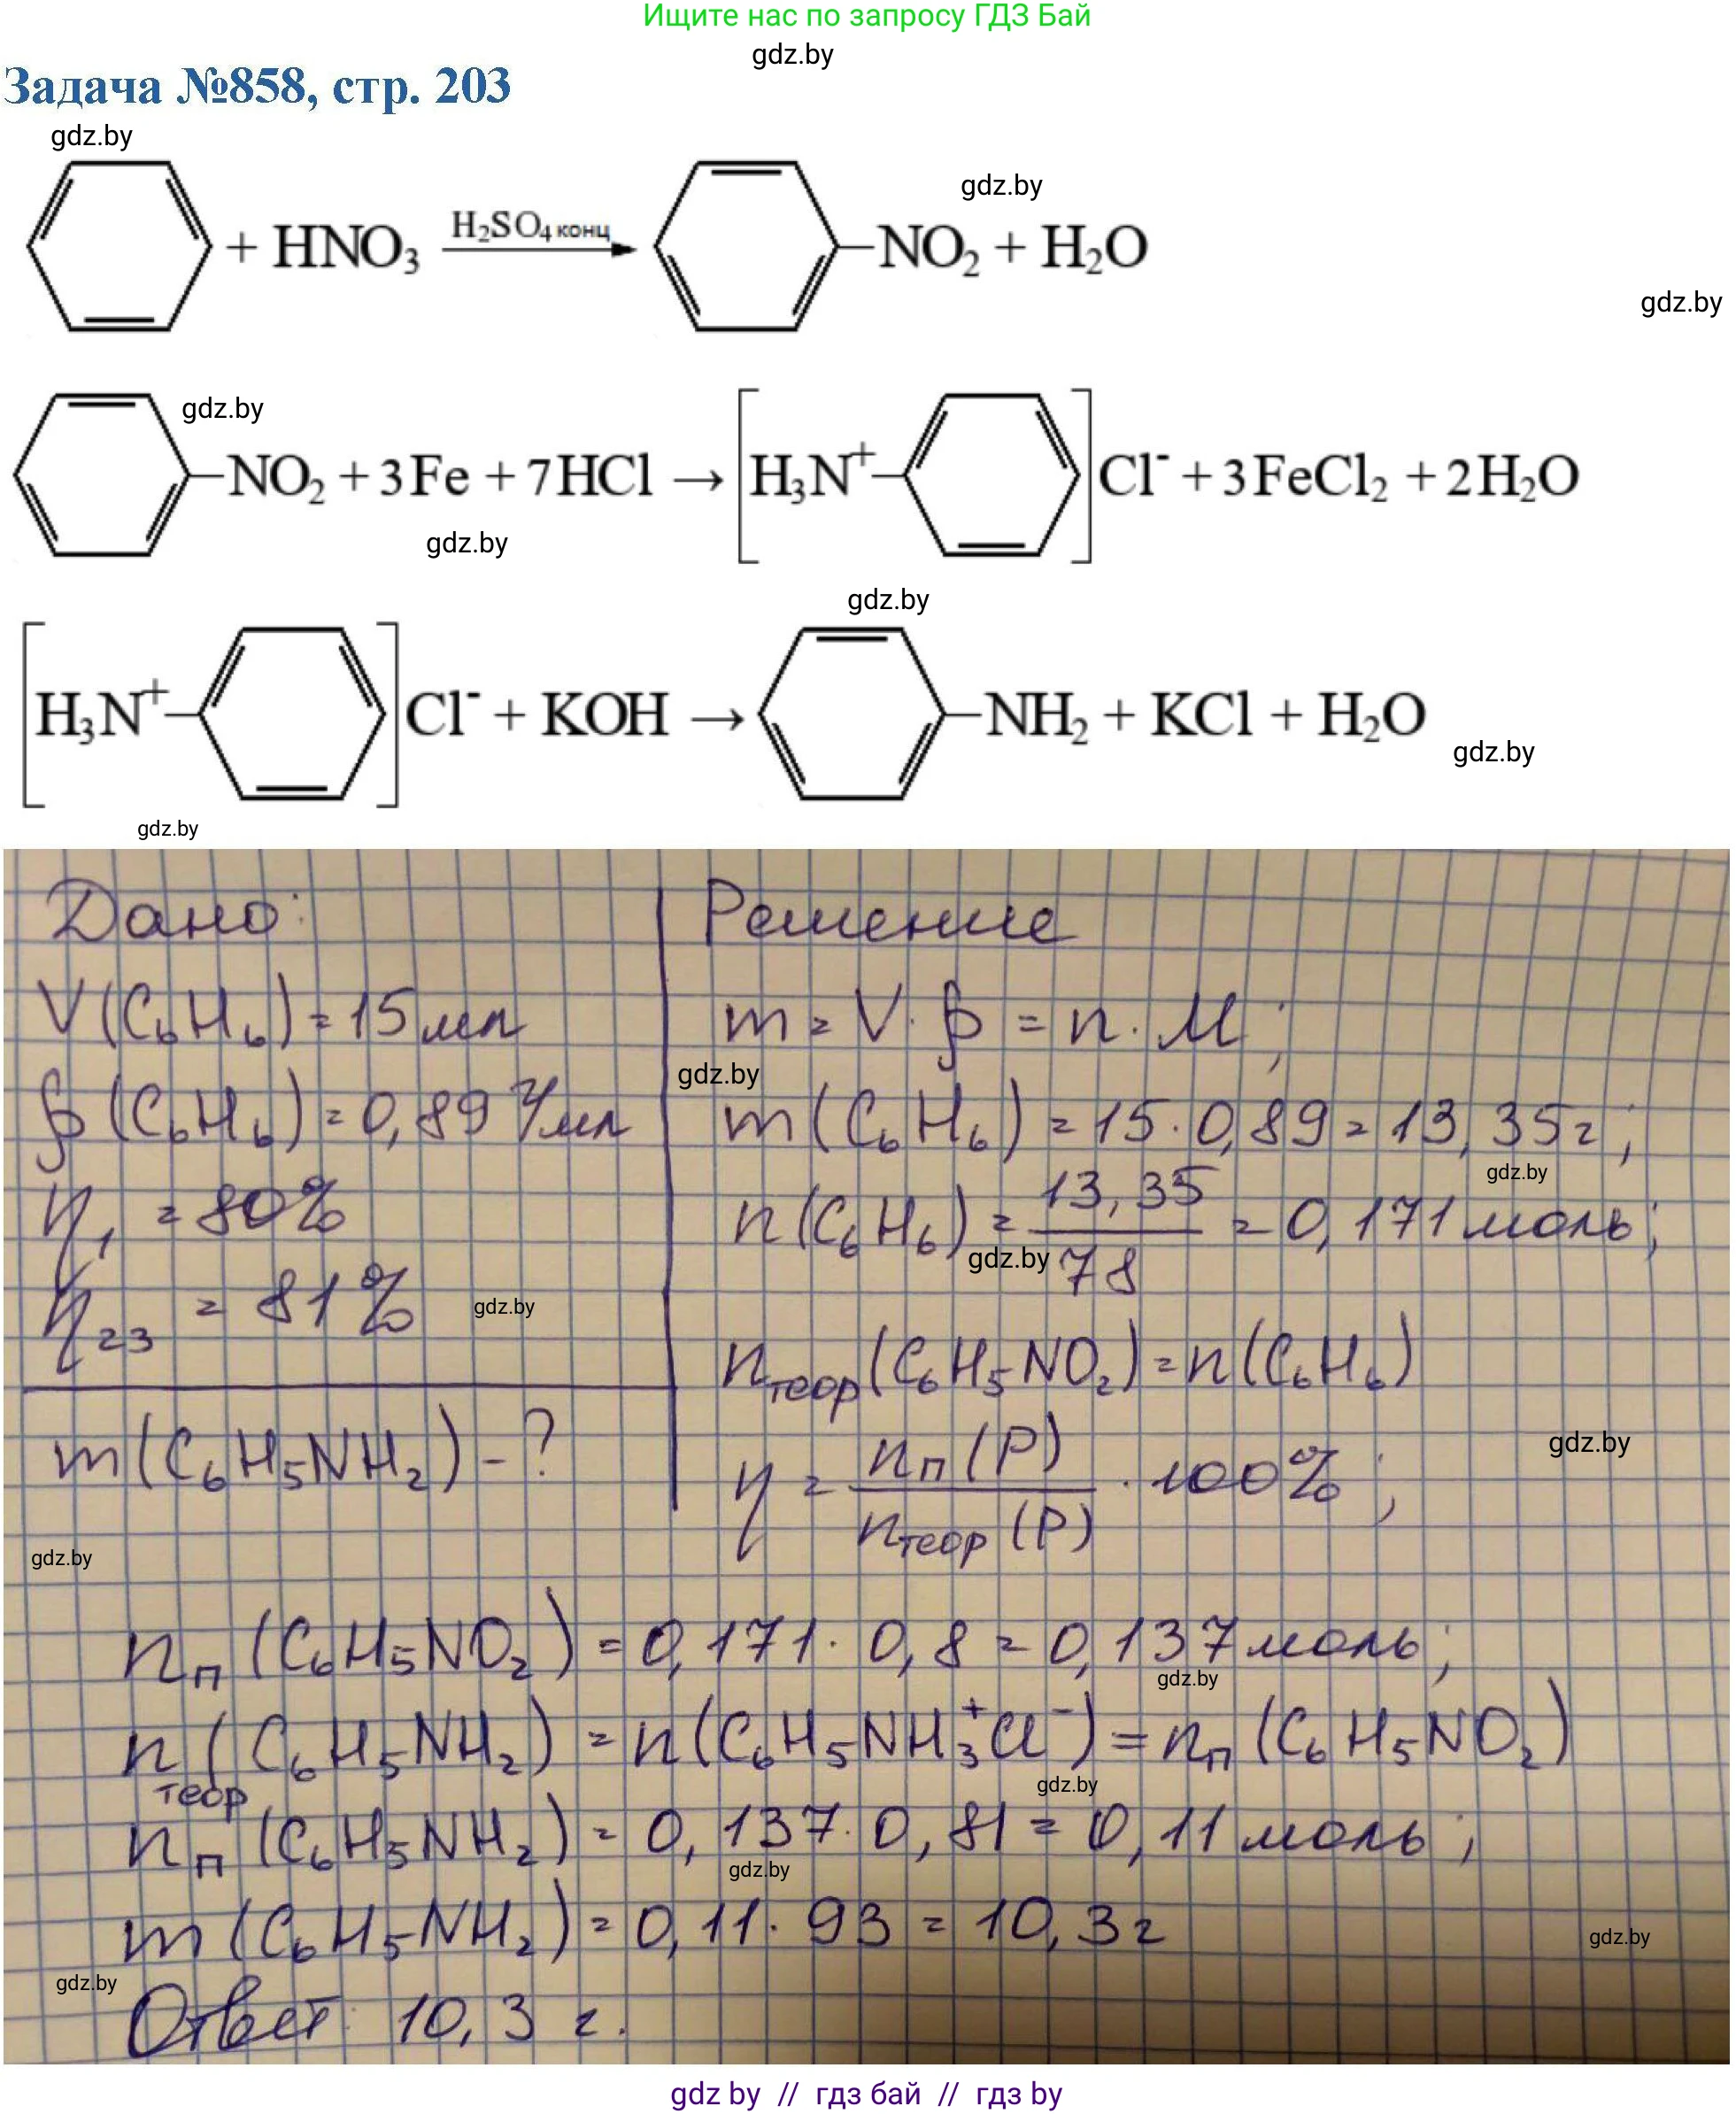 Ищите нас по запросу ГДЗ Бай
gdz.by
Задача №858, стр. 203
gdz.by
gdz.by
+ HNO₃ H₂SO₄ конц NO₂ + H₂O
gdz.by
gdz.by
NO₂ + 3Fe + 7HCl → [H₃N⁺ ]Cl⁻ + 3FeCl₂ + 2H₂O
gdz.by
gdz.by
[H₃N⁺ ]Cl⁻ + KOH → NH₂ + KCl + H₂O
gdz.by
gdz.by
Дано:
V(C₆H₆) = 15 мл
ρ(C₆H₆) = 0,89 г/мл
η₁ = 80%
η₂₃ = 81%
gdz.by
m(C₆H₅NH₂) - ?
gdz.by
Решение
m = V · ρ = n · M;
gdz.by
m(C₆H₆) = 15 · 0,89 = 13,35 г;
gdz.by
n(C₆H₆) = 13,35 / 78 = 0,171 моль;
gdz.by
nтеор(C₆H₅NO₂) = n(C₆H₆)
gdz.by
η = nп(P) / nтеор(P) · 100%;
nп(C₆H₅NO₂) = 0,171 · 0,8 = 0,137 моль;
gdz.by
nтеор(C₆H₅NH₂) = n(C₆H₅NH₃⁺Cl⁻) = nп(C₆H₅NO₂)
gdz.by
nп(C₆H₅NH₂) = 0,137 · 0,81 = 0,11 моль;
gdz.by
m(C₆H₅NH₂) = 0,11 · 93 = 10,3 г
gdz.by
gdz.by
Ответ: 10,3 г.
gdz by // гдз бай // гдз by